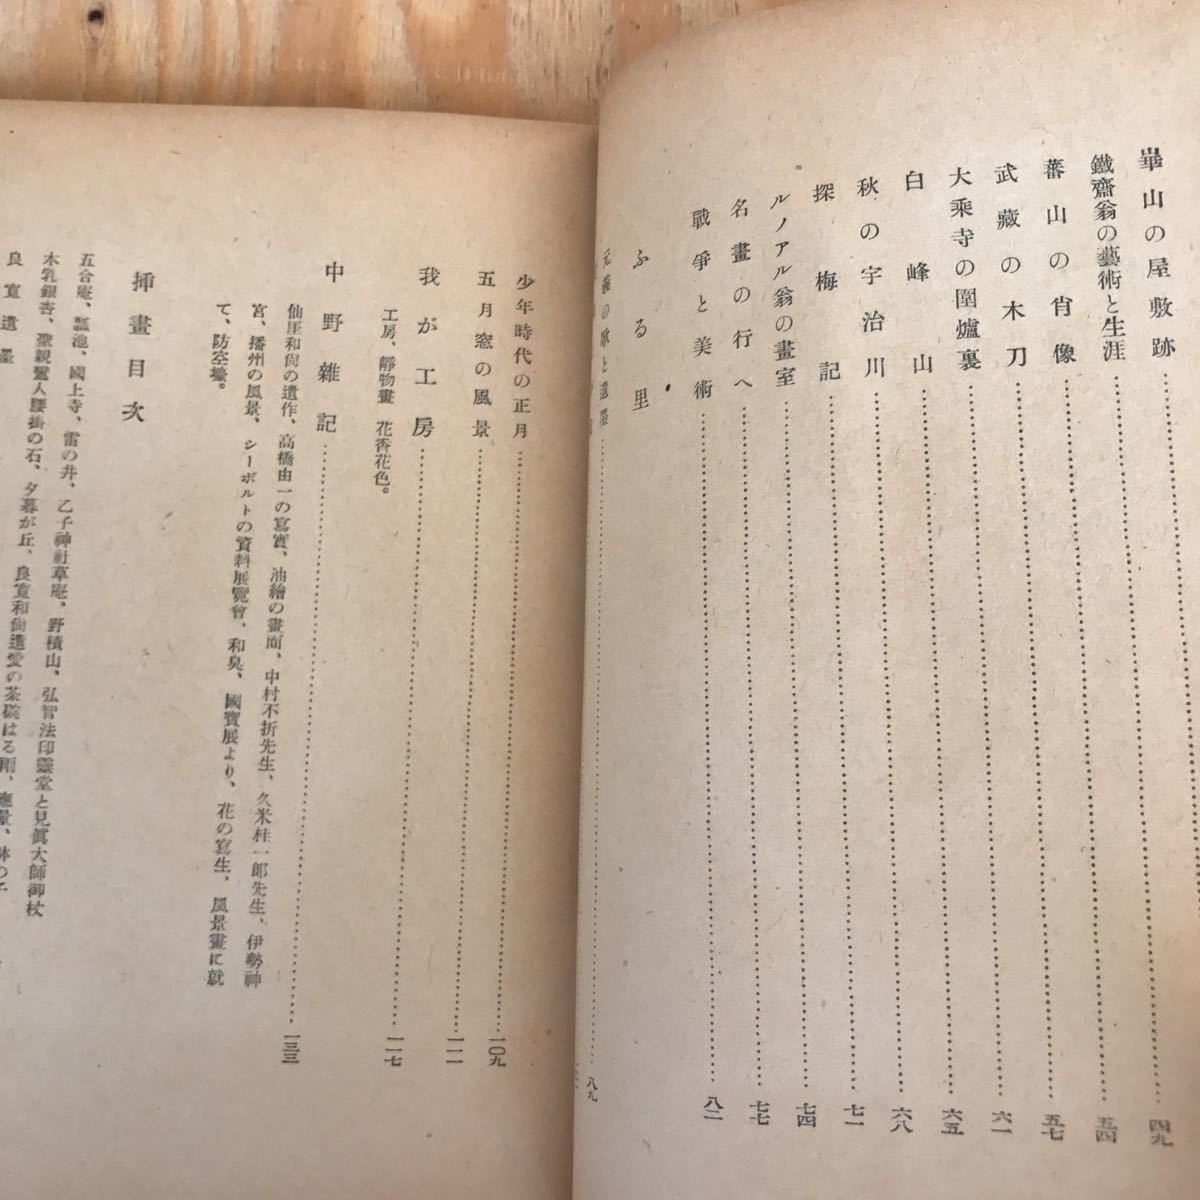 崋山の屋敷跡……四九
鐵齋翁の藝術と生涯……五四
蕃山の肖像……五七
武藏の木刀……六一
大乘寺の圍爐裏……六五
白峰山……六八
秋の宇治川……七一
探梅記……七四
ルノアル翁の畫室……七七
名畫の行へ
戰爭と美術……八二
ふる里
八九
少年時代の正月……一〇九
五月窓の風景……一一一
我が工房……一一七
工房、靜物畫 花香花色。
中野雜記……一三三
仙厓和尙の遺作、高橋由一の寫實、油繪の畫面、中村不折先生、久米桂一郎先生、伊勢神
宮、播州の風景、シーボルトの資料展覽會、和臭、國寶展より、花の寫生、風景畫に就
て、防空壕。
挿畫目次
五合庵、瓢池、國上寺、雷の井、乙子神社草庵、野積山、弘智法印靈堂と見眞大師御杖
木乳銀杏、聖親鸞人腰掛の石、夕暮が丘、良寬和尙遺愛の茶碗はる雨、
良寬遺墨